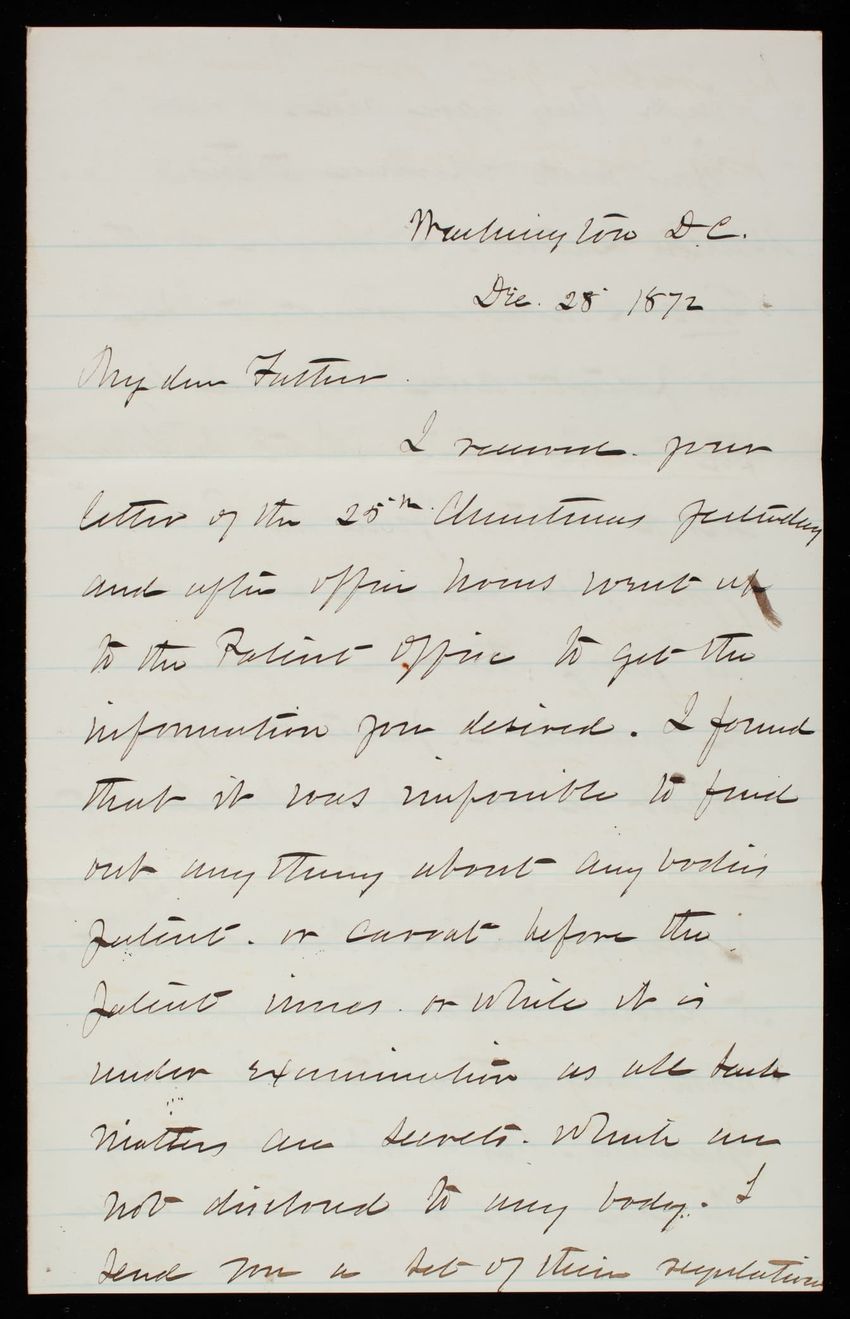 Washington D.C.
Dec. 28 1872
My dear Father.
I received your
letter of the 25th Christmas yesterday
and after office hours went up
to the Patent Office to get the
information you desired. I found
that it was impossible to find
out any thing about any bodies
patent. or caveat before the
patent issues. or while it is
under examination as all such
matters are secrets. which are
not disclosed to any body. I
send you a set of their regulations